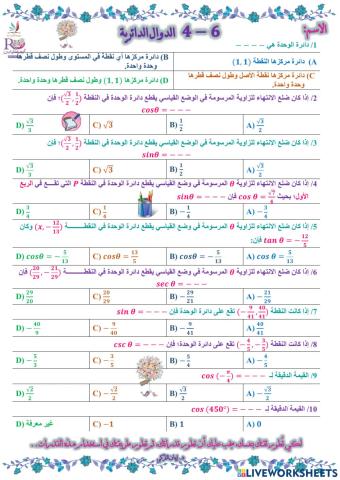 الاسم:
6 – 4 الدوال الدائرية
1/ دائرة الوحدة هي – – – –
A) دائرة مركزها النقطة (1, 1)
B) دائرة مركزها أي نقطة في المستوى وطول نصف قطرها وحدة واحدة.
C) دائرة مركزها نقطة الأصل وطول نصف قطرها وحدة واحدة
D) دائرة مركزها (1, 1) وطول نصف قطرها وحدة واحدة.
2/ إذا كان ضلع الانتهاء للزاوية θ المرسومة في الوضع القياسي يقطع دائرة الوحدة في النقطة (1/2, √3/2) فإن
cosθ = – – –
A) √3/2 B) 1/2 C) √3 D) √3/3
3/ إذا كان ضلع الانتهاء للزاوية θ المرسومة في الوضع القياسي يقطع دائرة الوحدة في النقطة (1/2, √3/2) فإن
sinθ = – – –
A) √3/2 B) 1/2 C) √3 D) √3/3
4/ إذا كان ضلع الانتهاء للزاوية θ المرسومة في وضع القياسي يقطع دائرة الوحدة في النقطة P التي تقع في الربع
الأول؛ بحيث cos θ = √7/4 فإن sinθ = – – –
A) −3/4 B) −1/4 C) 1/4 D) 3/4
5/ إذا كان ضلع الانتهاء للزاوية θ المرسومة في وضع القياسي يقطع دائرة الوحدة في النقطة (x, −12/13) وكان
tan θ = −12/5 فإن:
A) cosθ = 5/13 B) cosθ = −5/13 C) cosθ = 13/5 D) cosθ = −5/13
6/ إذا كان ضلع الانتهاء للزاوية θ المرسومة في الوضع القياسي يقطع دائرة الوحدة في النقطة (20/29, −21/29) فإن
sec θ = – – –
A) −21/29 B) −29/21 C) 20/29 D) 29/20
7/ إذا كانت النقطة (−9/41, 40/41) تقع على دائرة الوحدة فإن sin θ = – – –
A) 40/41 B) −9/41 C) −9/40 D) −40/9
8/ إذا كانت النقطة (−4/5, −3/5) تقع على دائرة الوحدة؛ فإن csc θ = – – –
A) −4/5 B) −5/4 C) −3/5 D) −5/3
9/ القيمة الدقيقة لـ cos (−π/4) = – – –
A) −√3/2 B) √3/2 C) −√2/2 D) √2/2
10/ القيمة الدقيقة لـ cos (450°) = – – –
A) 0 B) 1 C) −1 D) غير معرفة
LIVEWORKSHEETS